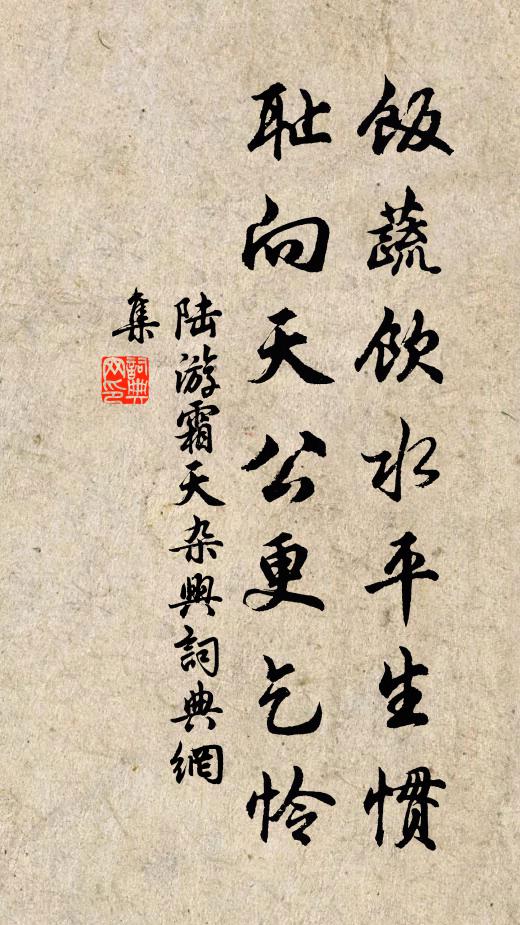 飯蔬飲水平生慣
耻向天公更乞怜
陆游霜天杂興詞典網
集
詞典
网印